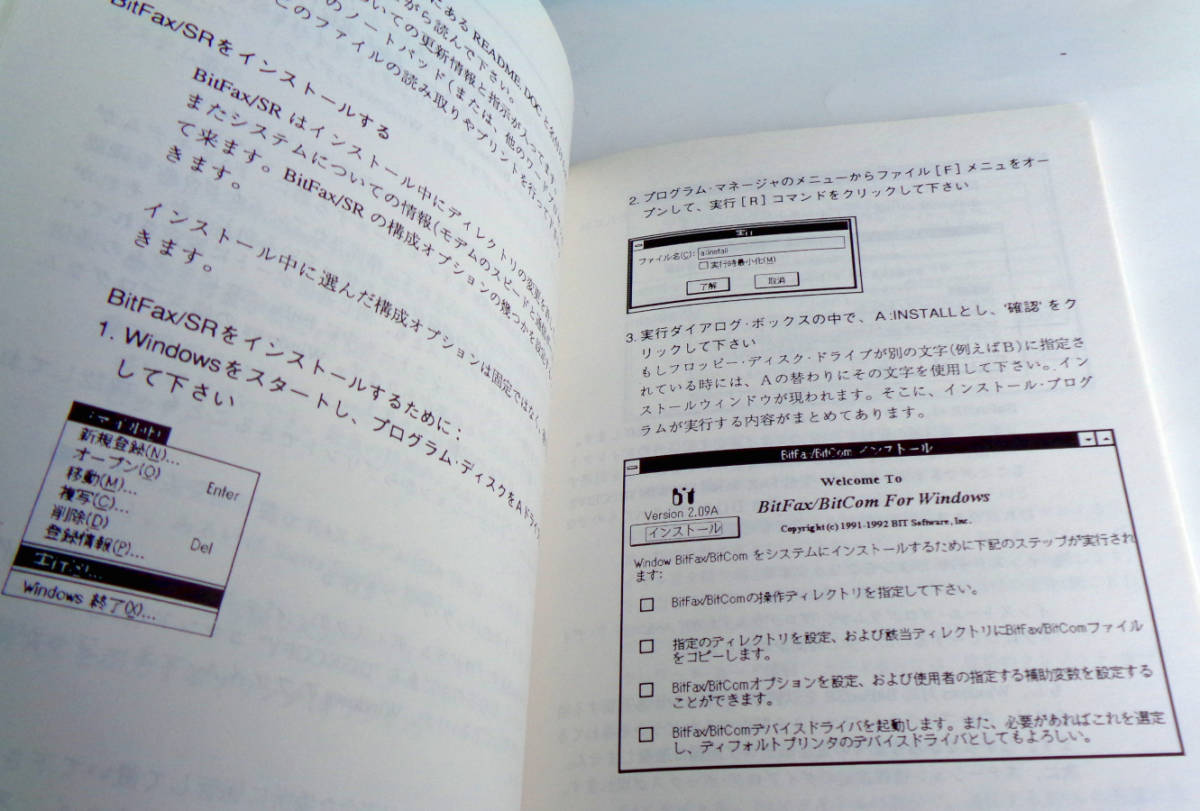 にある README. DOC と
がら読んで下さい。
いての更新情報と指示が入ってます。
のノートパッド(または、他のワードプ
どのファイルの読み取りやプリントを行って下さ
BitFax/SRをインストールする
BitFax/SR はインストール中にディレクトリの変更を
またシステムについての情報(モデムのスピードと
て来ます。BitFax/SR の構成オプションの幾つかを設定
きます。
インストール中に選んだ構成オプションは固定ではなく、
きます。
BitFax/SRをインストールするために:
1. Windowsをスタートし、プログラム・ディスクをAドライ
して下さい
ファイル(F)
新規登録(N)...
オープン(O) Enter
移動(M)...
複写(C)...
削除(D) Del
登録情報(P)...
実行(R)...
Windows 終了(X)...
2. プログラム・マネージャのメニューからファイル [F] メニュをオー
プンして、実行 [R] コマンドをクリックして下さい
実行
ファイル名(C): a:install
実行時最小化(M)
了解 取消
3. 実行ダイアログ・ボックスの中で、A:INSTALLとし、'確認' をク
リックして下さい
もしフロッピー・ディスク・ドライブが別の文字(例えばB)に指定さ
れている時には、Aの替わりにその文字を使用して下さい。イン
ストールウィンドウが現われます。そこに、インストール・プログ
ラムが実行する内容がまとめてあります。
BitFax/BitCom インストール
bit
Version 2.09A
インストール
Welcome To
BitFax/BitCom For Windows
Copyright (c) 1991-1992 BIT Software, Inc.
Window BitFax/BitCom をシステムにインストールするために下記のステップが実行され
ます:
BitFax/BitComの操作ディレクトリを指定して下さい。
指定のディレクトリを設定、および該当ディレクトリにBitFax/BitComファイル
をコピーします。
BitFax/BitComオプションを設定、および使用者の指定する補助変数を設定する
ことができます。
BitFax/BitComデバイスドライバを起動します。また、必要があればこれを選定
し、ディフォルトプリンタのデバイスドライバとしてもよろしい。